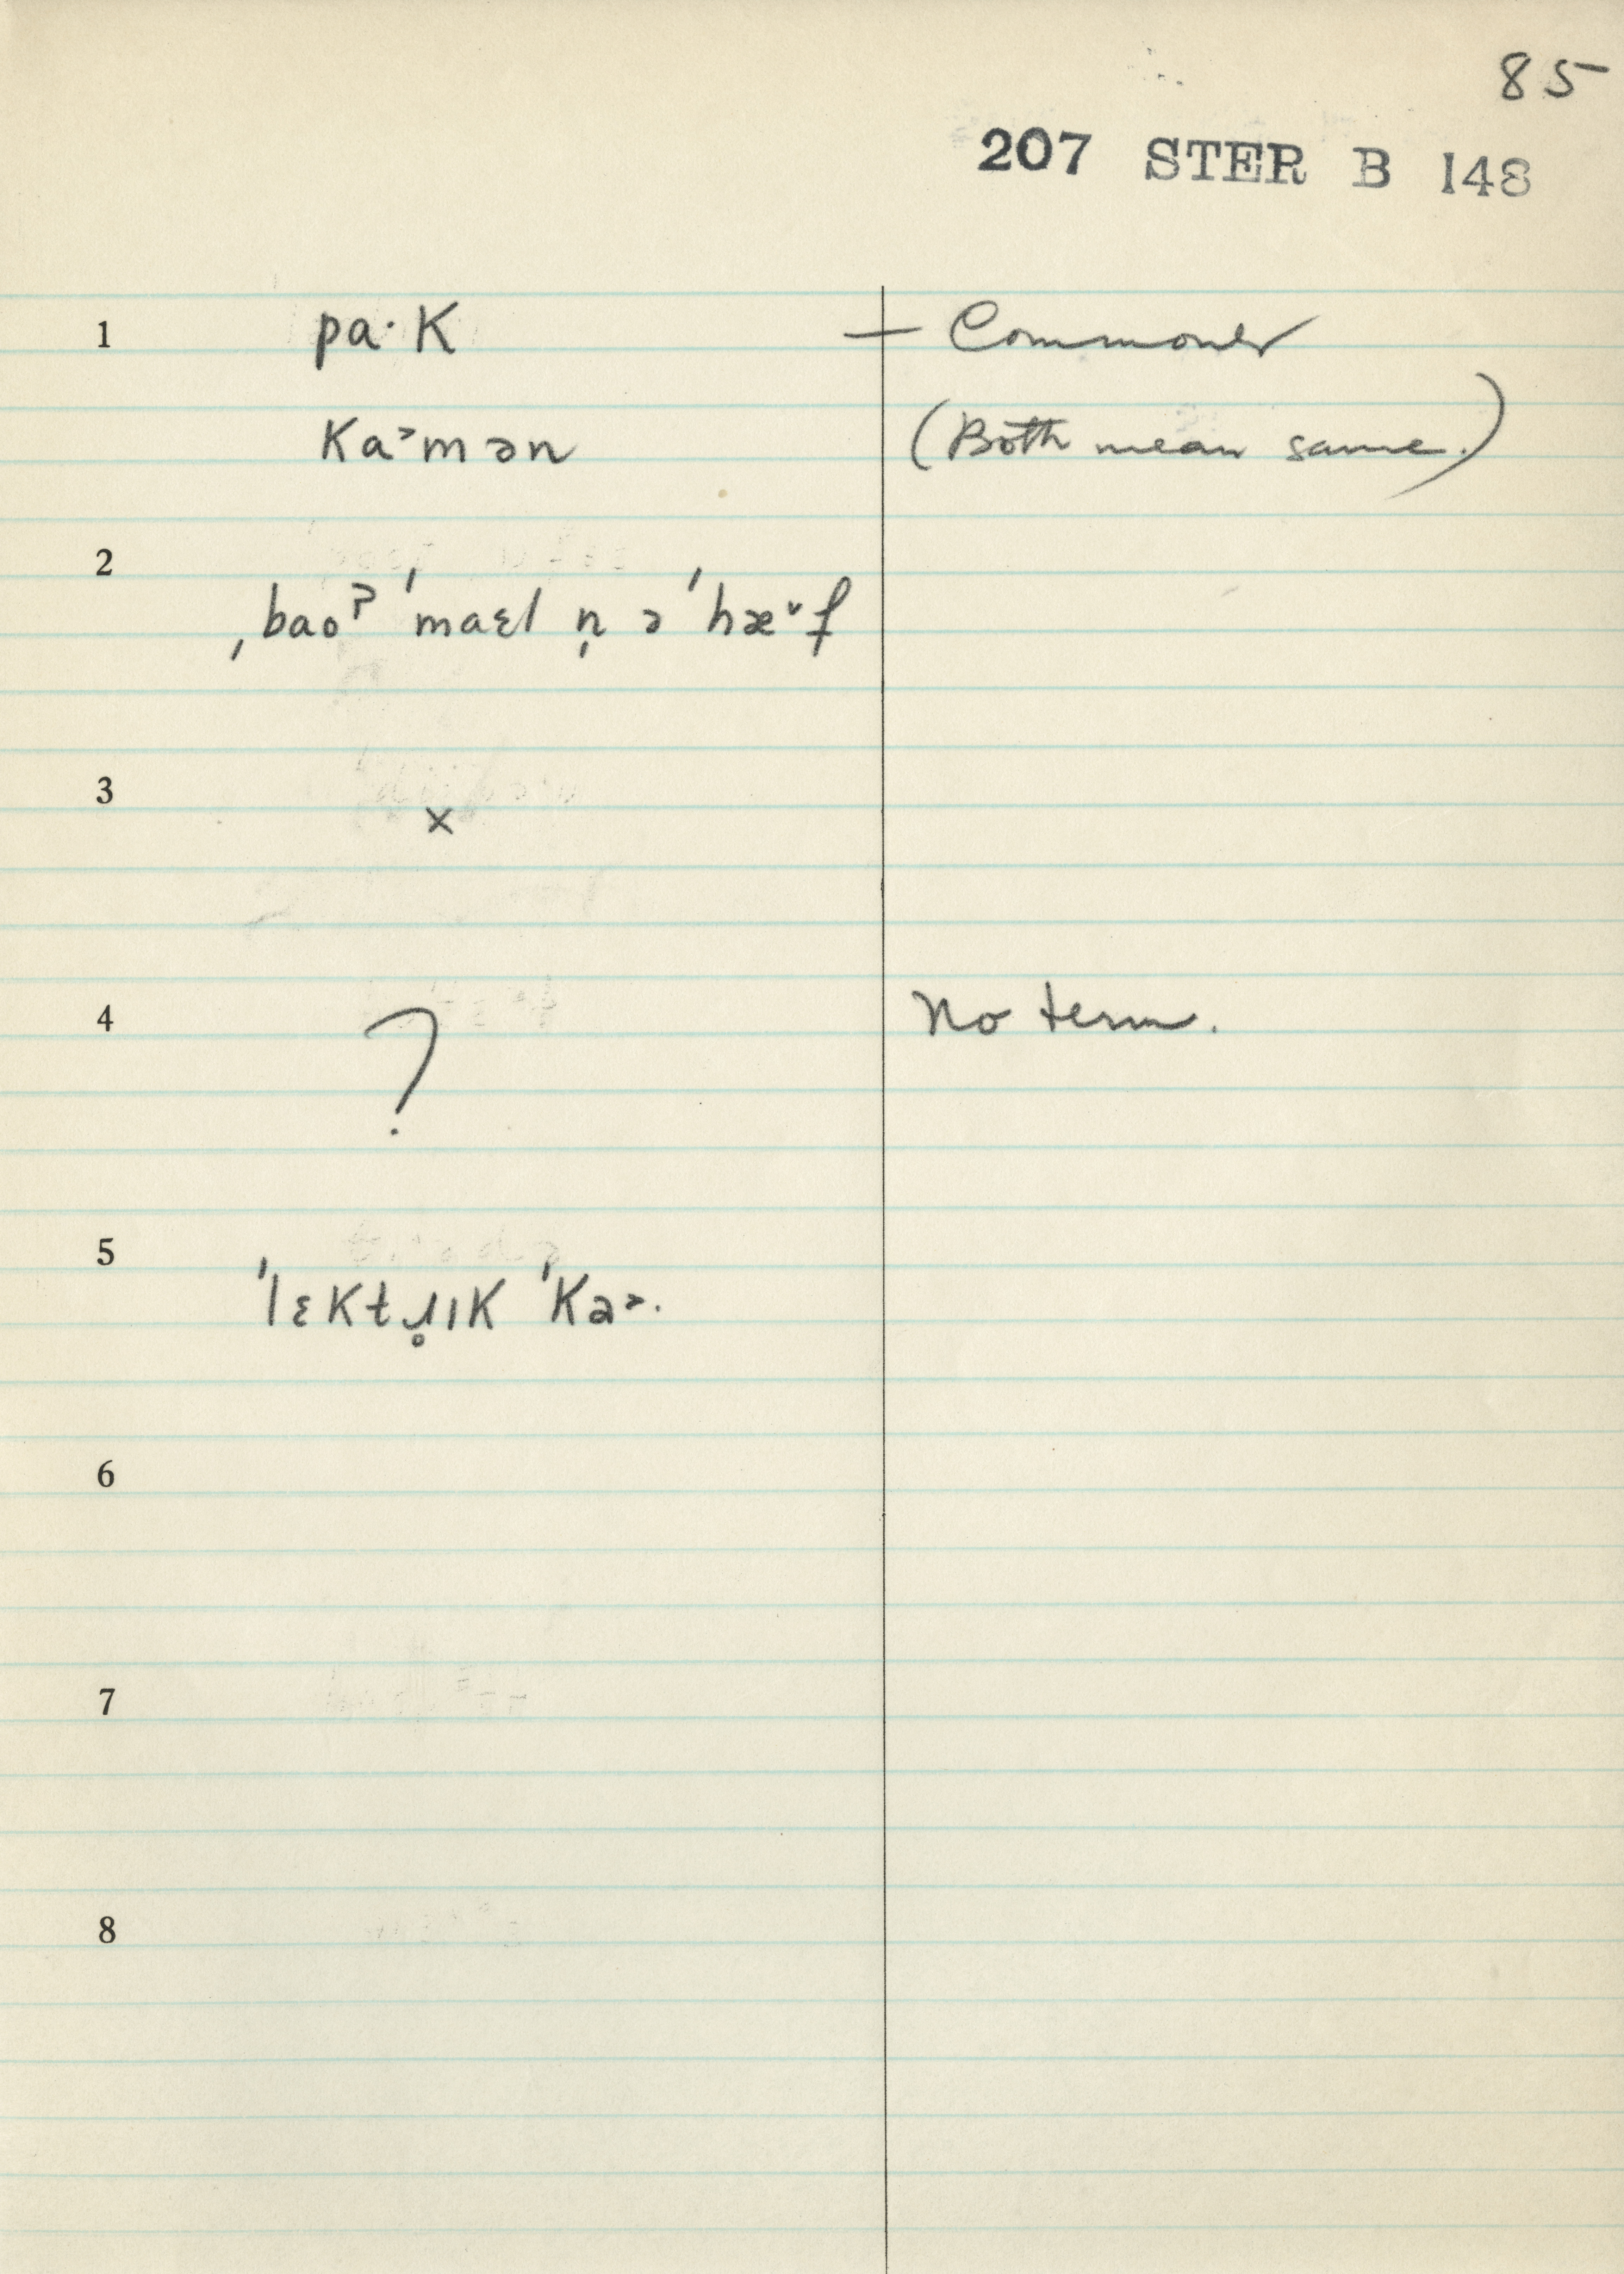 85
207 STER B 148
1 pa·K — Commoner
Ka˃mən (Both mean same.)
2
ˌbaoˀ ˈmaɛl n̩ ə ˈhæ˅f
3
×
4 ? No term.
5
ˈlɛKtɹ̥ɪK ˈKa˃.
6
7
8